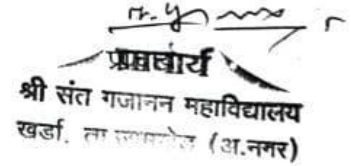 प्राचार्य
श्री संत गजानन महाविद्यालय
खर्डा. ता (अ.नगर)